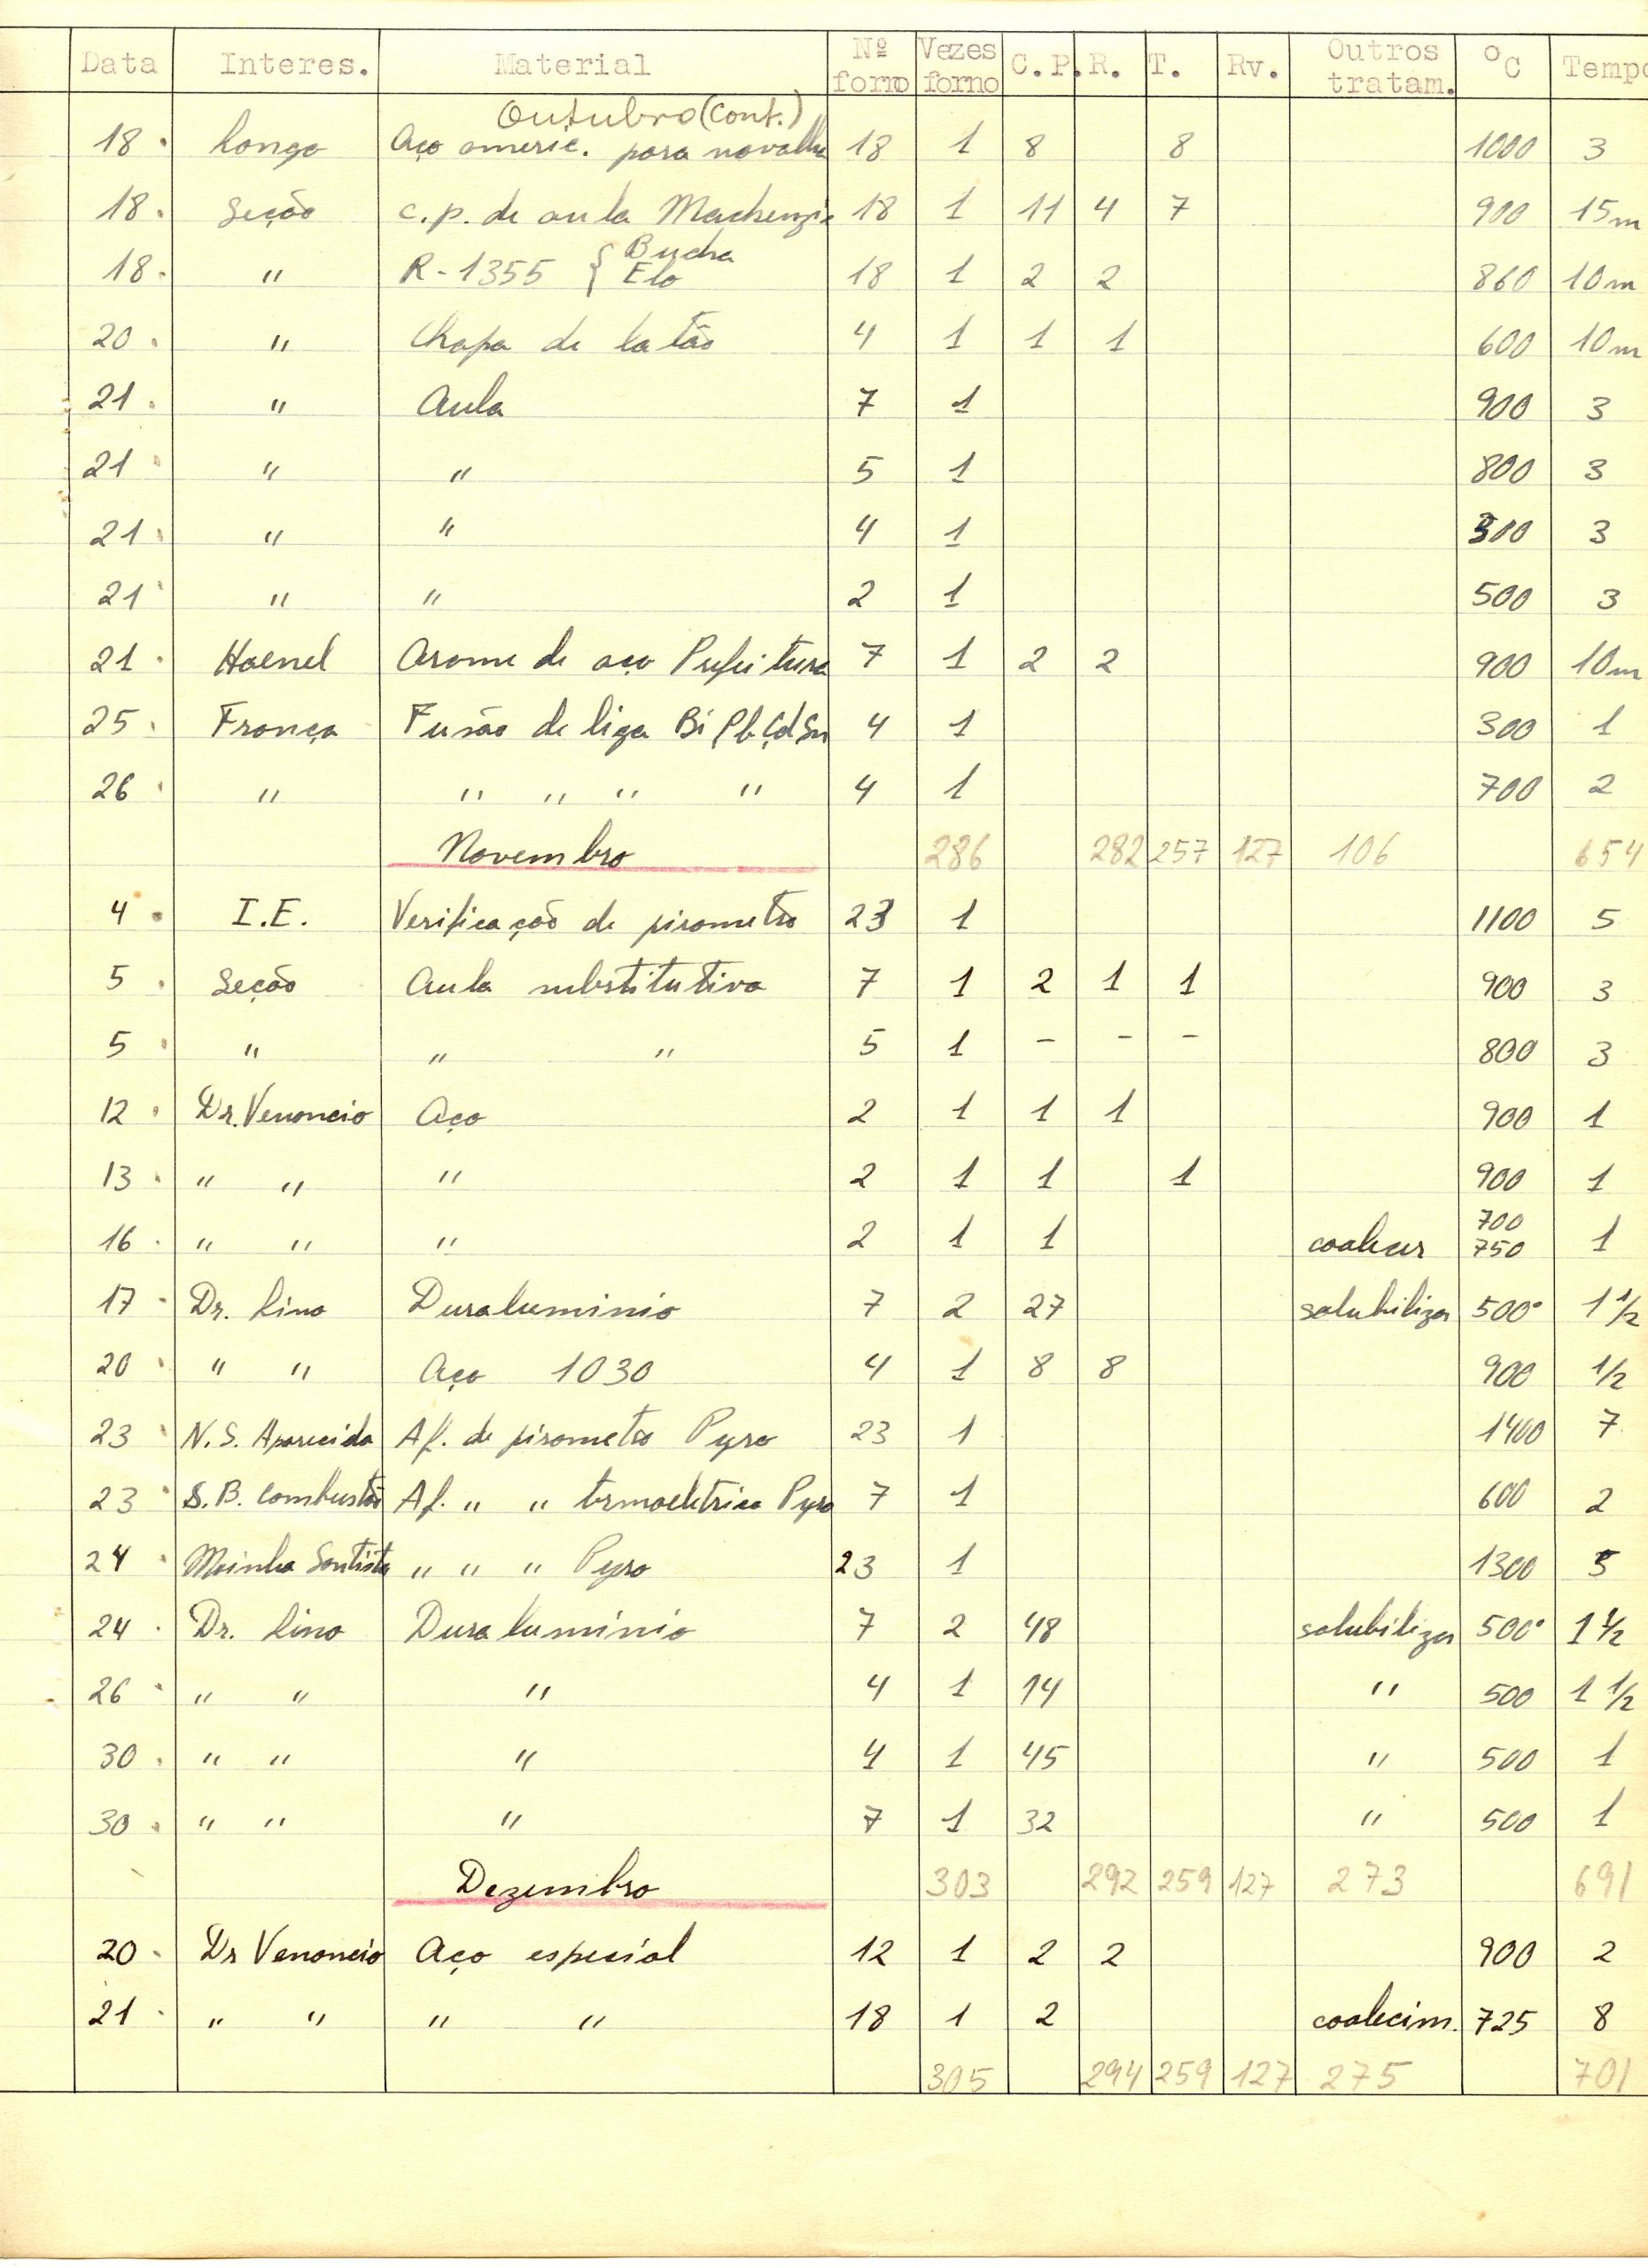 Data Interes. Material Nº forno Vezes forno C.P. R. T. Rv. Outros tratam. ºC Tempo
Outubro (cont.)
18 Longo Aço americ. para navalha 18 1 8 8 1000 3
18 Seção c.p. de aula Mackenzie 18 1 11 4 7 900 15m
18 " R-1355 { Bucha Elo 18 1 2 2 860 10m
20 " Chapa de latão 4 1 1 1 600 10m
21 " Aula 7 1 900 3
21 " " 5 1 800 3
21 " " 4 1 300 3
21 " " 2 1 500 3
21 Haenel Arame de aço Prefeitura 7 1 2 2 900 10m
25 França Fusão de liga Bi, Pb, Cd, Sn 4 1 300 1
26 " " " " " 4 1 700 2
Novembro 286 282 257 127 106 654
4 I.E. Verificação de pirometro 23 1 1100 5
5 Seção Aula substitutiva 7 1 2 1 1 900 3
5 " " " 5 1 - - - 800 3
12 Dr. Venancio Aço 2 1 1 1 900 1
13 " " " 2 1 1 1 900 1
16 " " " 2 1 1 coalecer 700 750 1
17 Dr. Lino Duraluminio 7 2 27 solubilizar 500° 1 1/2
20 " " Aço 1030 4 1 8 8 900 1/2
23 N.S. Aparecida Af. de pirometro Pyro 23 1 1400 7
23 S.B. Combustão Af. " " termoeletrico Pyro 7 1 600 2
24 Moinho Santista " " " Pyro 23 1 1300 5
24 Dr. Lino Duraluminio 7 2 48 solubilizar 500° 1 1/2
26 " " " 4 1 14 " 500 1 1/2
30 " " " 4 1 45 " 500 1
30 " " " 7 1 32 " 500 1
Dezembro 303 292 259 127 273 691
20 Dr Venancio Aço especial 12 1 2 2 900 2
21 " " " " 18 1 2 coalecim. 725 8
305 294 259 127 275 701